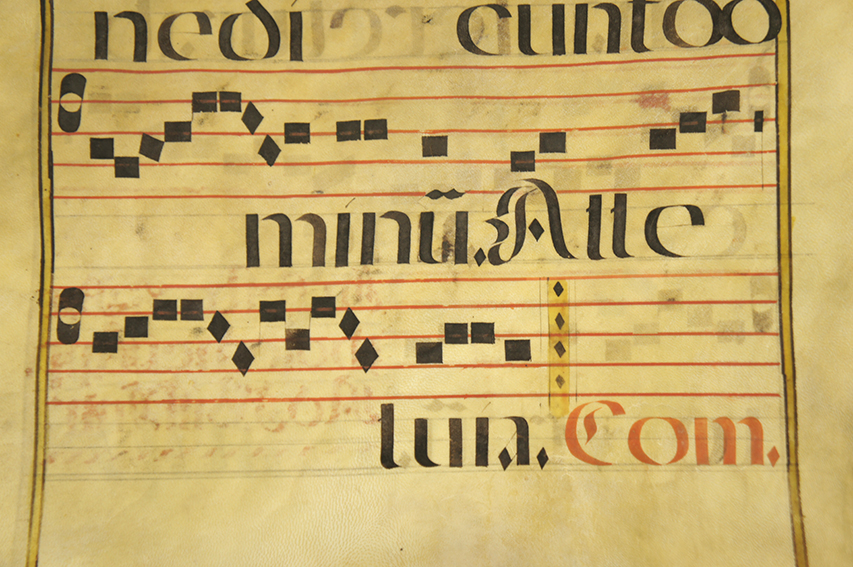 nedi cunt do
minũ. Alle
luia. Com.